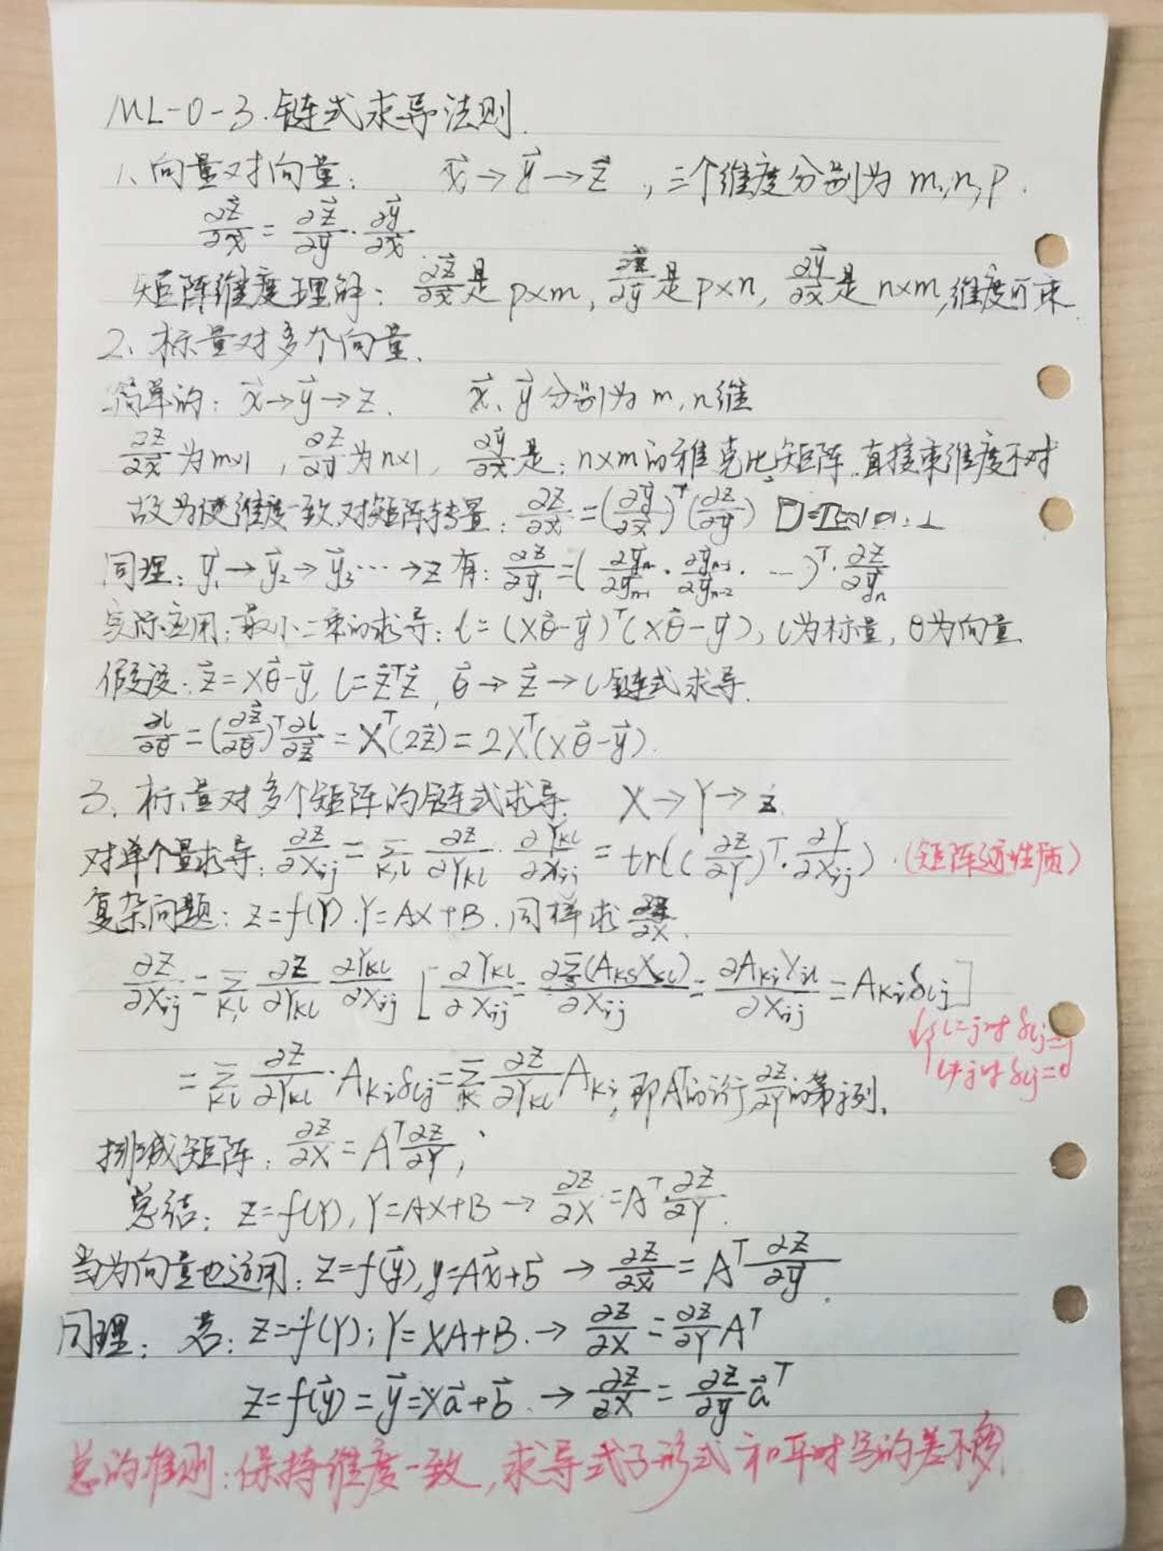 ML-0-3.链式求导法则.
1、向量对向量: x⃗→y⃗→z⃗ ,三个维度分别为 m,n,p.
∂z⃗/∂x⃗ = ∂z⃗/∂y⃗ · ∂y⃗/∂x⃗
矩阵维度理解: ∂z⃗/∂x⃗ 是 p×m, ∂z⃗/∂y⃗ 是 p×n, ∂y⃗/∂x⃗ 是 n×m,维度可乘.
2、标量对多个向量.
简单的: x⃗→y⃗→z. x⃗、y⃗ 分别为 m,n维
∂z/∂x⃗ 为m×1 , ∂z/∂y⃗ 为n×1, ∂y⃗/∂x⃗ 是: n×m的雅克比矩阵.直接乘维度不对
故为使维度一致,对矩阵转置: ∂z/∂x⃗ = (∂y⃗/∂x⃗)ᵀ(∂z/∂y⃗)
同理: y⃗₁→y⃗₂→y⃗₃…→z 有: ∂z/∂y⃗₁ = (∂y⃗ₙ/∂y⃗ₙ₋₁ · ∂y⃗ₙ₋₁/∂y⃗ₙ₋₂ · …)ᵀ · ∂z/∂y⃗ₙ
实际应用:最小二乘的求导: l = (Xθ⃗-y⃗)ᵀ(Xθ⃗-y⃗), l为标量, θ为向量.
假设: z⃗=Xθ⃗-y⃗, l=z⃗ᵀz⃗, θ⃗→z⃗→l 链式求导.
∂l/∂θ⃗ = (∂z⃗/∂θ⃗)ᵀ ∂l/∂z⃗ = Xᵀ(2z⃗) = 2Xᵀ(Xθ⃗-y⃗).
3、标量对多个矩阵的链式求导. X→Y→z
对单个量求导: ∂z/∂Xij = Σk,l ∂z/∂Ykl · ∂Ykl/∂Xij = tr((∂z/∂Y)ᵀ·∂Y/∂Xij). (矩阵迹性质)
复杂问题: z=f(Y). Y=AX+B. 同样求 ∂z/∂X.
∂z/∂Xij = Σk,l ∂z/∂Ykl ∂Ykl/∂Xij [∂Ykl/∂Xij = ∂Σs(AksXsl)/∂Xij = ∂AkiXil/∂Xij = Akiδlj]
l=j时 δlj=1
l≠j时 δlj=0
= Σk,l ∂z/∂Ykl · Akiδlj = Σk ∂z/∂Ykl Aki, 即Aᵀ的i行, ∂z/∂Y的第j列.
排成矩阵: ∂z/∂X = Aᵀ ∂z/∂Y;
总结: z=f(Y), Y=AX+B → ∂z/∂X = Aᵀ ∂z/∂Y.
当为向量也适用: z=f(y⃗), y=Ax⃗+b⃗ → ∂z/∂x⃗ = Aᵀ ∂z/∂y⃗.
同理: 若: z=f(Y); Y=XA+B. → ∂z/∂X = ∂z/∂Y Aᵀ
z=f(y⃗)=y⃗=Xa⃗+b⃗. → ∂z/∂X = ∂z/∂y⃗ a⃗ᵀ
总的准则:保持维度一致,求导式子形式和平时写的差不多